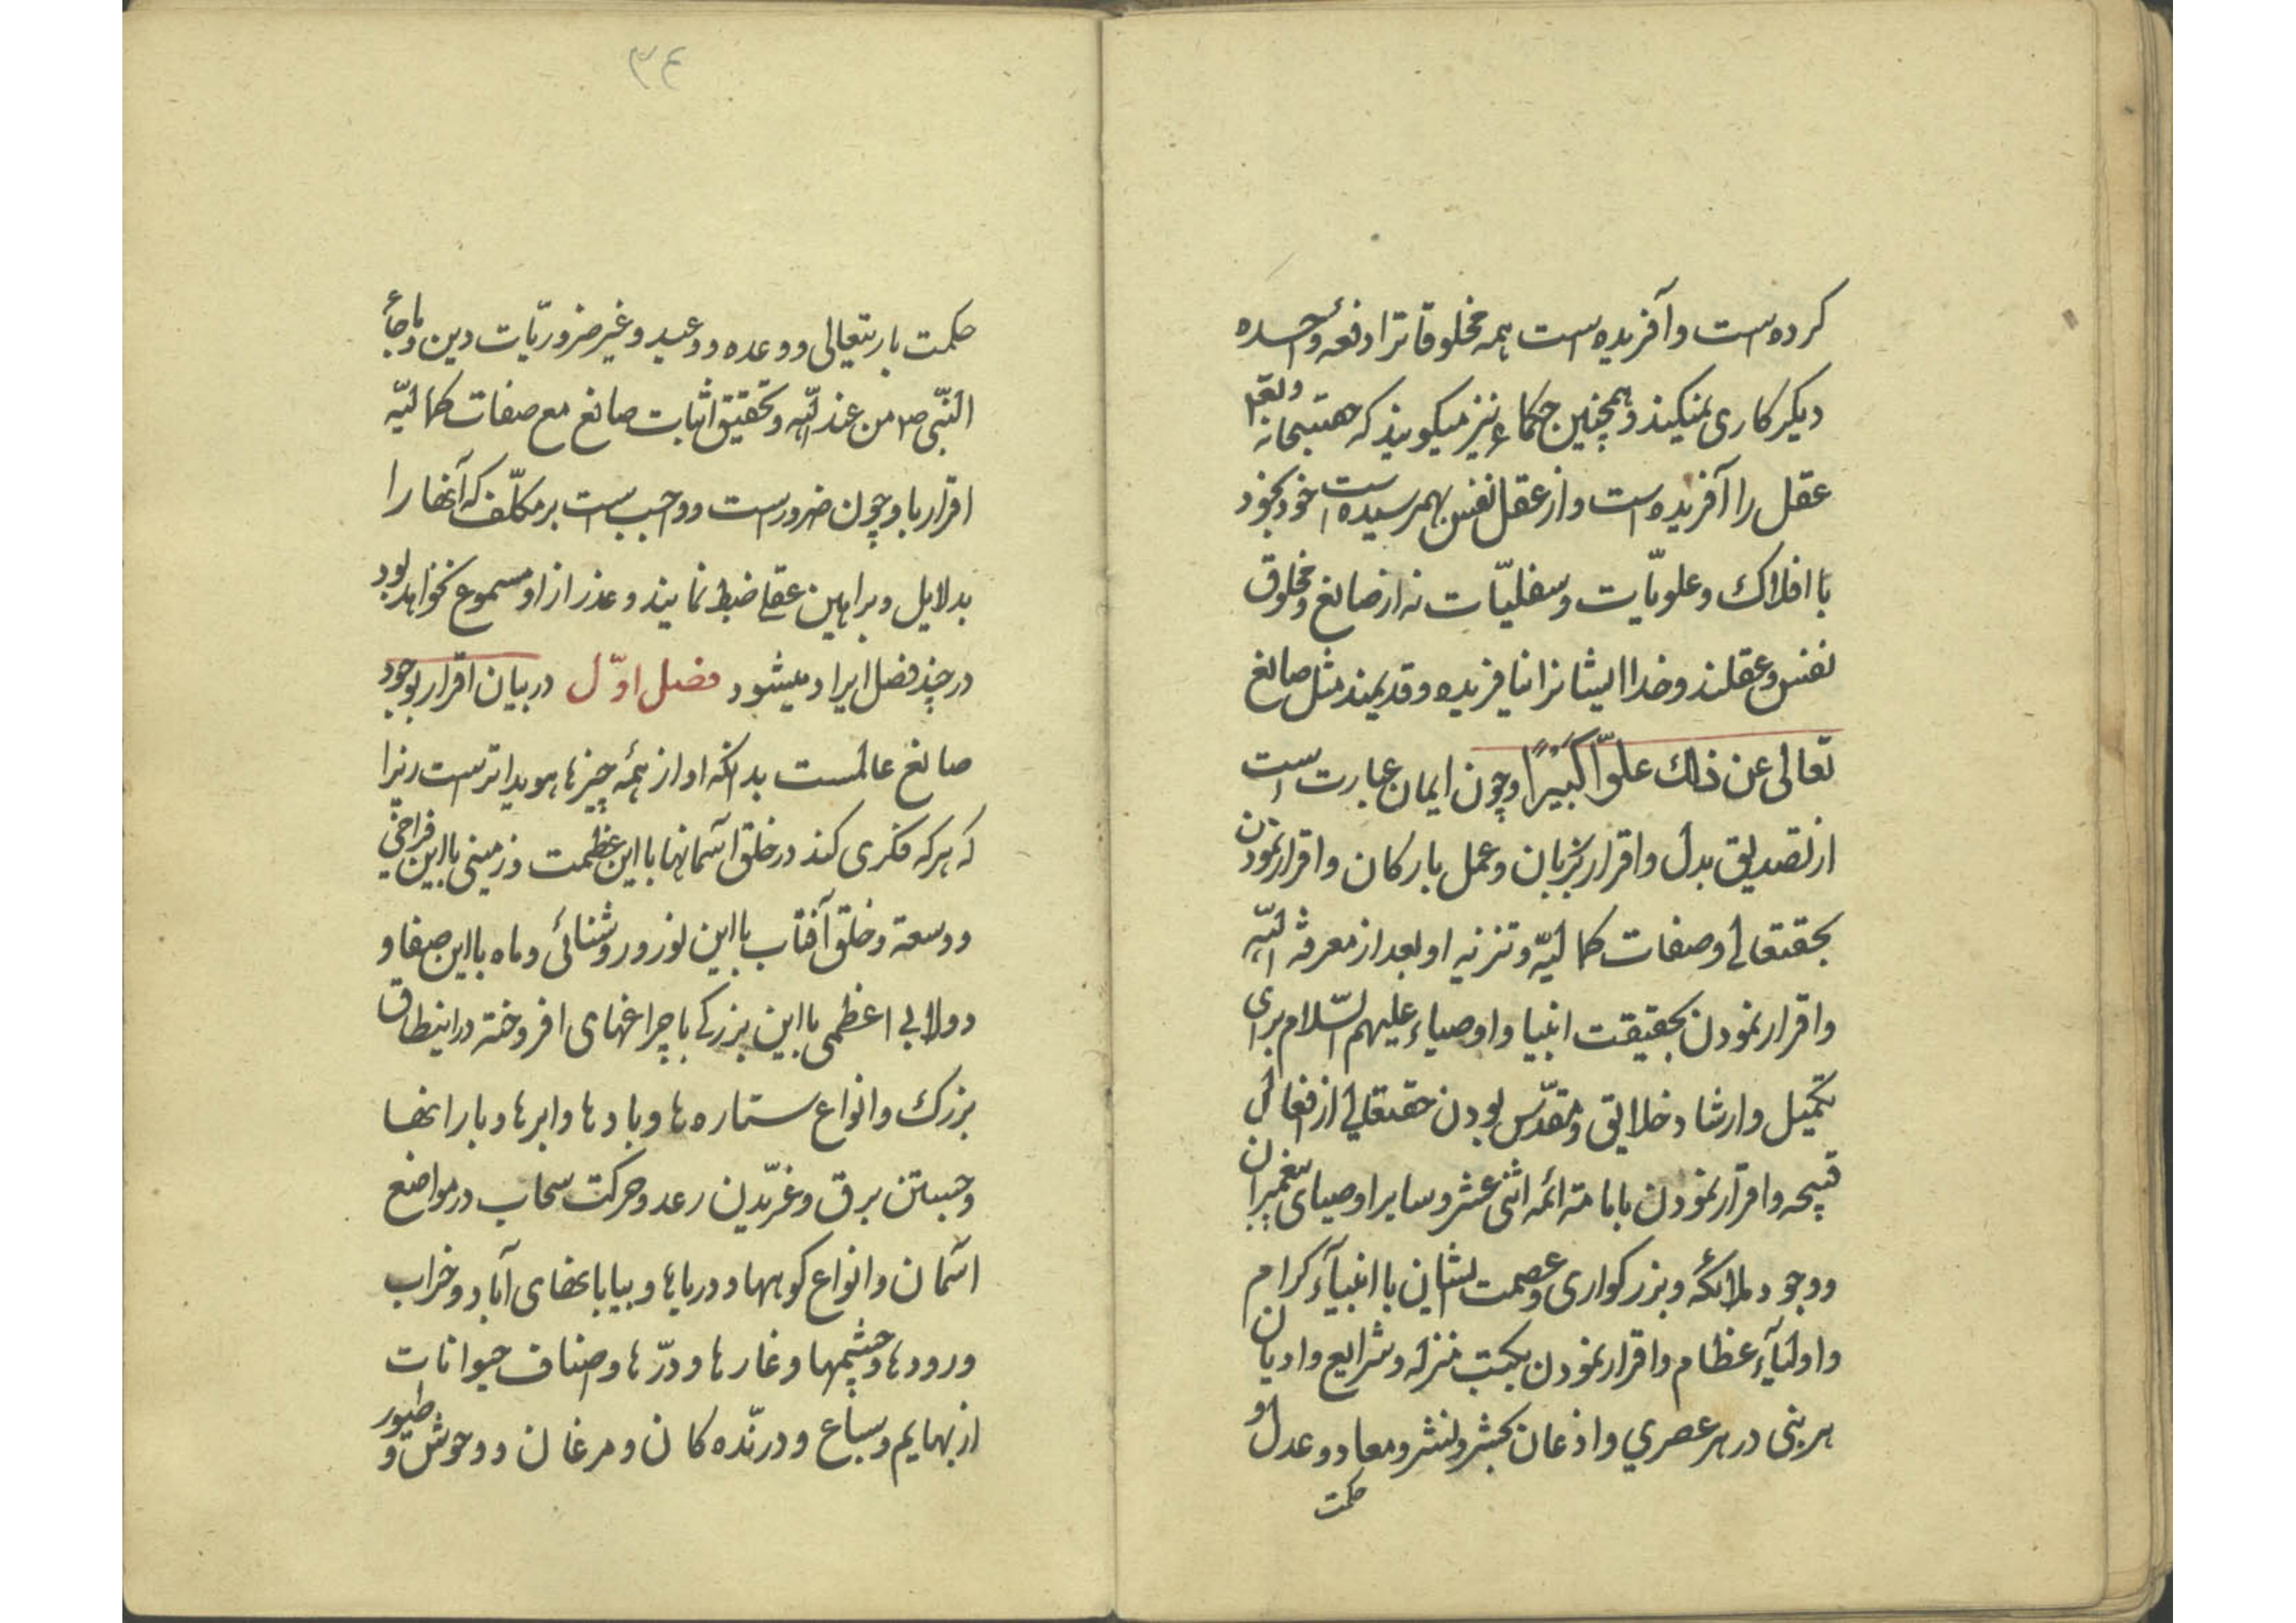 کرده است و آفریده است همه مخلوقاترا دفعة واحده
دیکر کاری نمیکند و همچنین حکماء نیز میکویند که حقسبحانه وتعالی
عقل را آفریده است و از عقل نفس بهمرسیده است خود بخود
با افلاک و علویّات و سفلیّات نه از صانع و مخلوق
نفس و عقلند و خدا ایشانرا نیافریده و قدیمند مثل صانع
تعالی عن ذلک علوّاً کبیرًا و چون ایمان عبارت است
از تصدیق بدل و اقرار بزبان و عمل بارکان و اقرار نمودن
بحقتعالی و صفات کمالیّه و تنزیه او بعد از معرفة الله
و اقرار نمودن بحقیقت انبیا و اوصیاء علیهم السّلام برای
تکمیل و ارشاد خلایق و مقدّس بودن حقتعالی از افعال
قبیحه و اقرار نمودن بامامتة ائمه اثنی عشر و سایر اوصیای پیغمبران
و وجود ملائکه و بزرکواری و عصمت ایشان با انبیآء کرام
و اولیآء عظام و اقرار نمودن بکتب منزله و شرایع و ادیان
هر بنی در هر عصری و اذعان بحشر و نشر و معاد و عدل و
حکمت
۳۴
حکمت باریتعالی و وعده و وعید و غیر ضروریّات دین و ما جاء
النّبی ص من عند الله و تحقیق اثبات صانع مع صفات کمالیّه
اقرار باو چون ضرورست و واجب است بر مکلّف که آنها را
بدلایل و براهین عقلی ضبط نمایند و عذر از او مسموع نخواهد بود
در چند فصل ایراد میشود فصل اوّل در بیان اقرار بوجود
صانع عالمست بدانکه او از همه چیزها هویداترست زیرا
که هر که فکری کند در خلق آسمانها با این عظمت و زمینی با این فراخی
و وسعة و خلق آفتاب با این نور و روشنائی و ماه با این صفا و
دولابی اعظمی با این بزرکی با چراغهای افروخته در اینطاق
بزرک و انواع ستاره ها و بادها و ابرها و بارانها
و جستن برق و غرّیدن رعد و حرکت سحاب در مواضع
آسمان و انواع کوهها و دریاها و بیابانهای آباد و خراب
و رودها و چشمها و غارها و درّها و اصناف حیوانات
از بهایم و سباع و درنّده کان و مرغان و وحوش و طیور